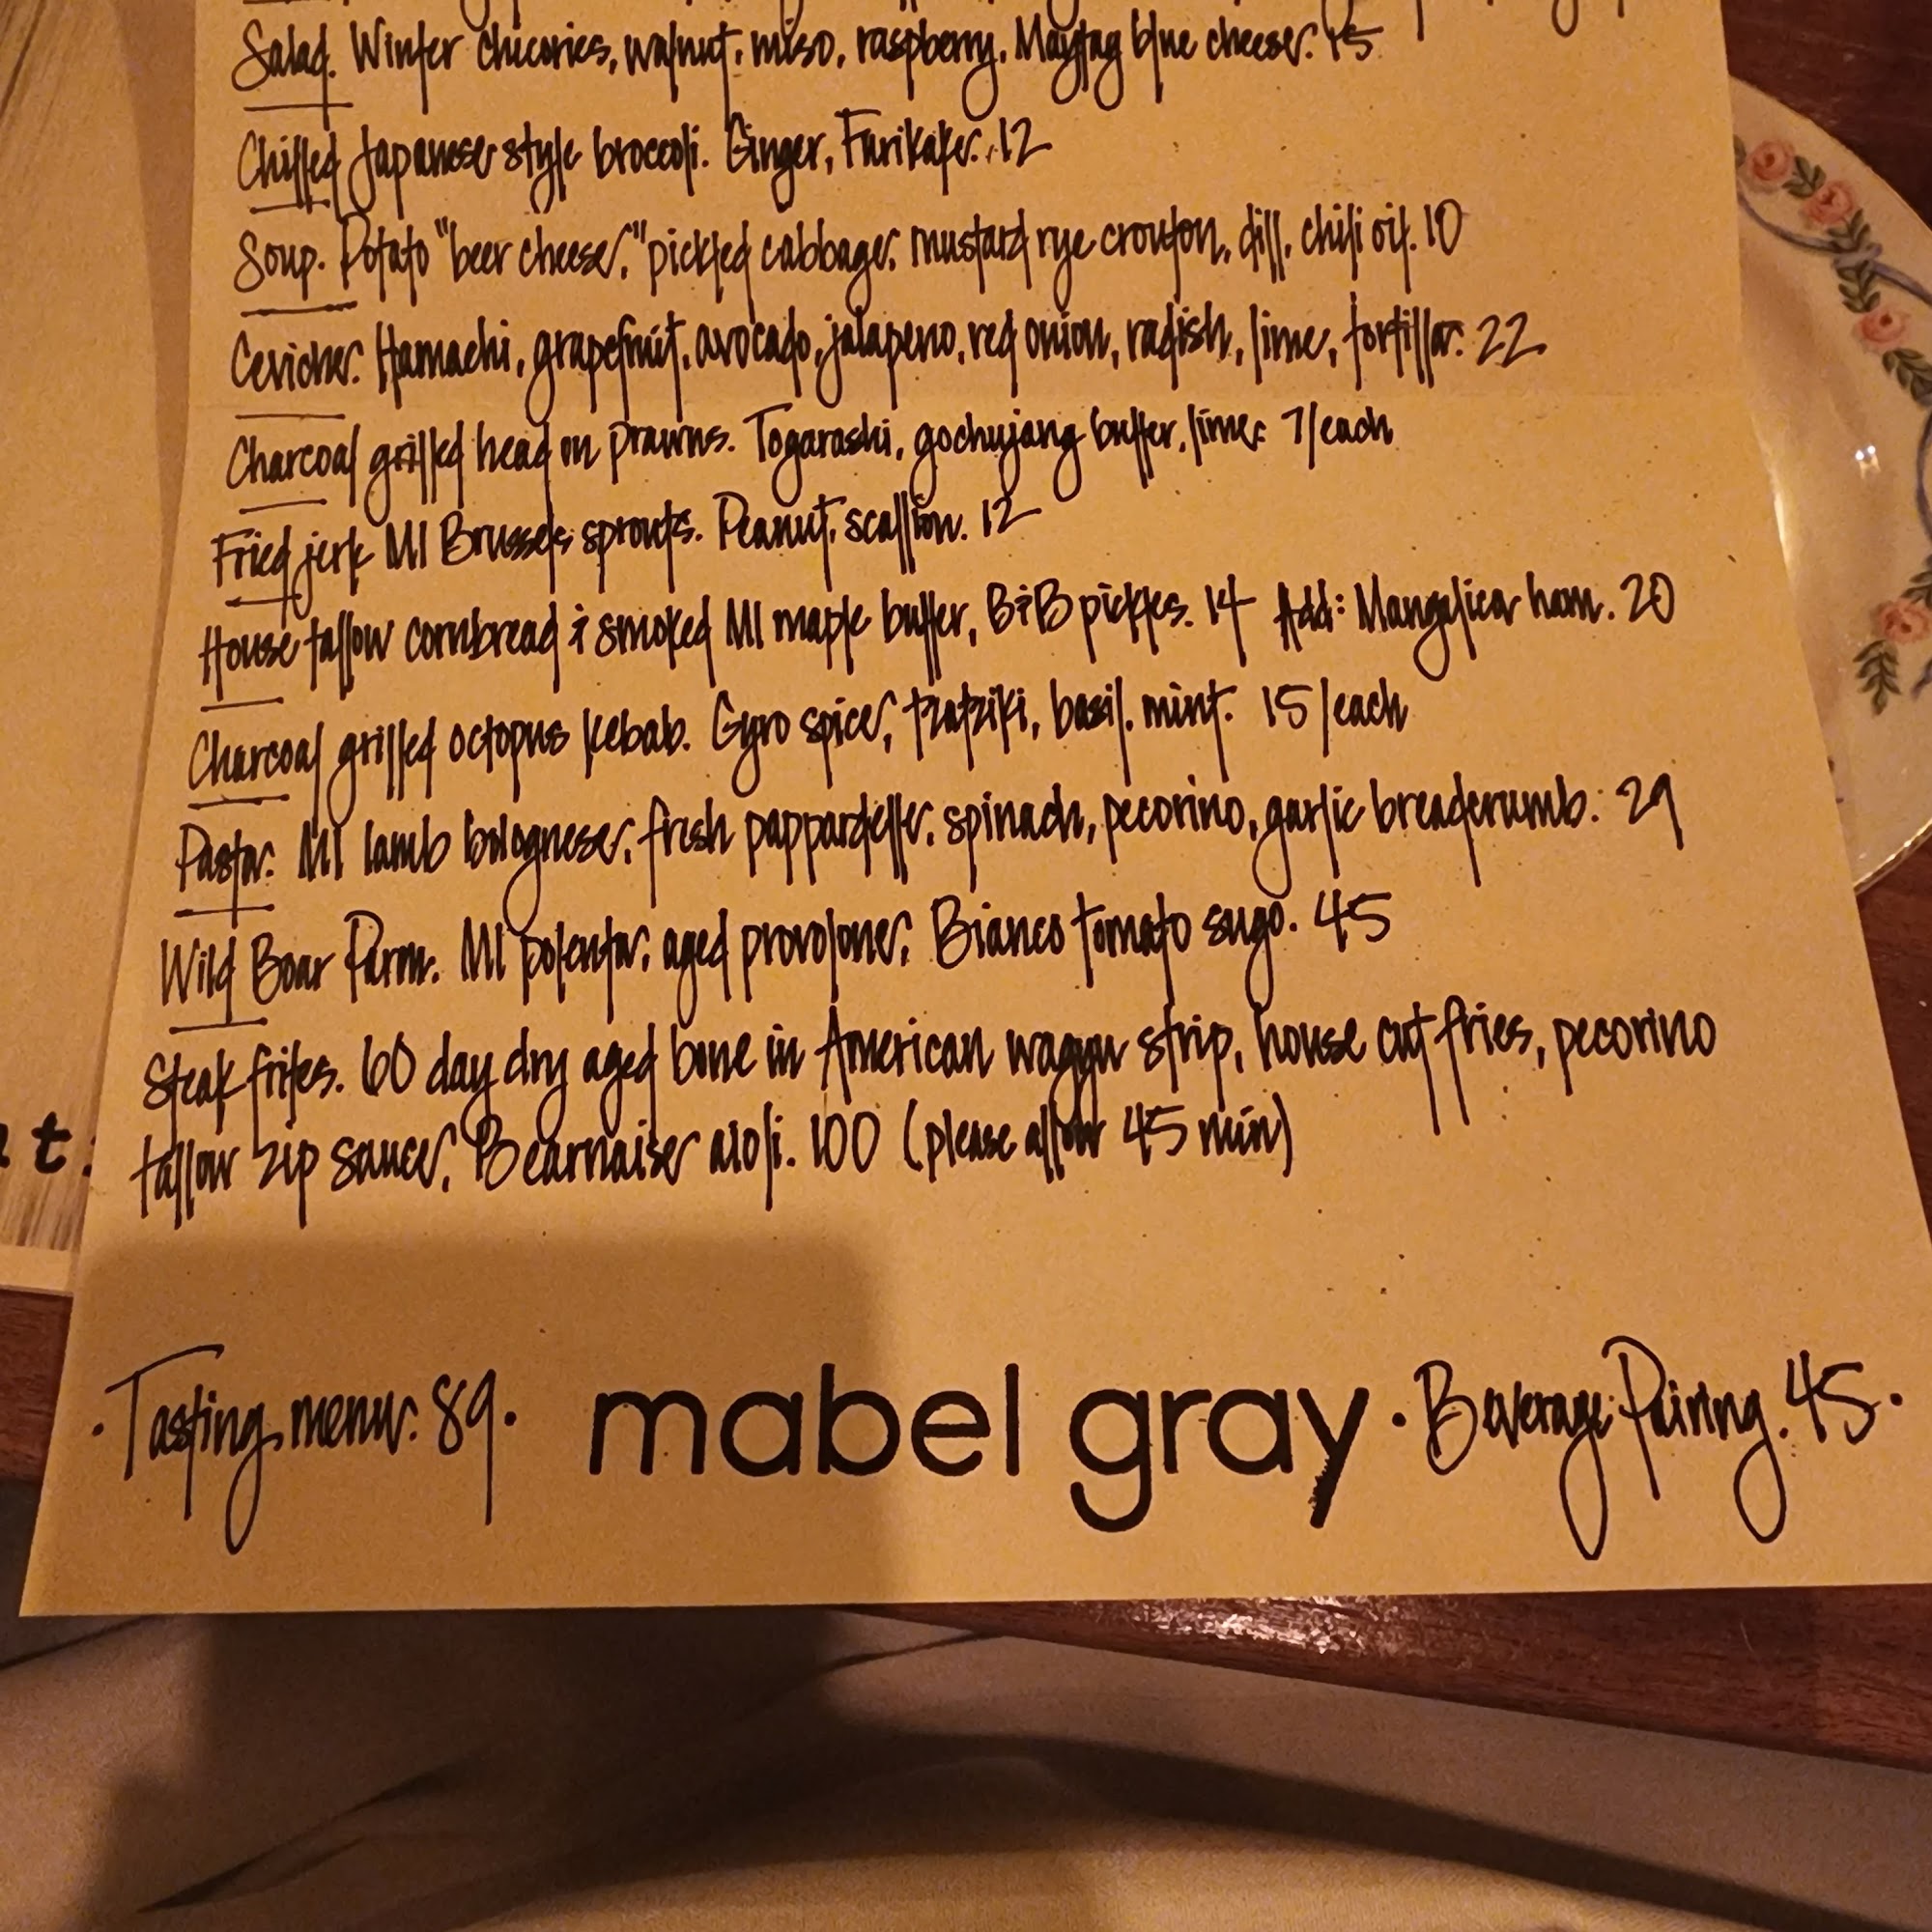 Salad. Winter chicories, walnut, miso, raspberry, Maytag blue cheese. 15
Chilled Japanese style broccoli. Ginger, Furikake. 12
Soup. Potato "beer cheese," pickled cabbage, mustard rye crouton, dill, chili oil. 10
Ceviche. Hamachi, grapefruit, avocado, jalapeno, red onion, radish, lime, tortilla. 22
Charcoal grilled head on prawns. Togarashi, gochujang butter, lime. 7/each
Fried jerk MI Brussels sprouts. Peanut, scallion. 12
House tallow cornbread & smoked MI maple butter, B&B pickles. 14 Add: Mangalica ham. 20
Charcoal grilled octopus kebab. Gyro spice, tzatziki, basil, mint. 15/each
Pasta. MI lamb bolognese, fresh pappardelle, spinach, pecorino, garlic breadcrumb. 29
Wild Boar Parm. MI polenta, aged provolone, Bianco tomato sugo. 45
Steak frites. 60 day dry aged bone in American wagyu strip, house cut fries, pecorino
tallow zip sauce, Bearnaise aioli. 100 (please allow 45 min)
t.
·Tasting menu. 89· mabel gray ·Beverage Pairing. 45·